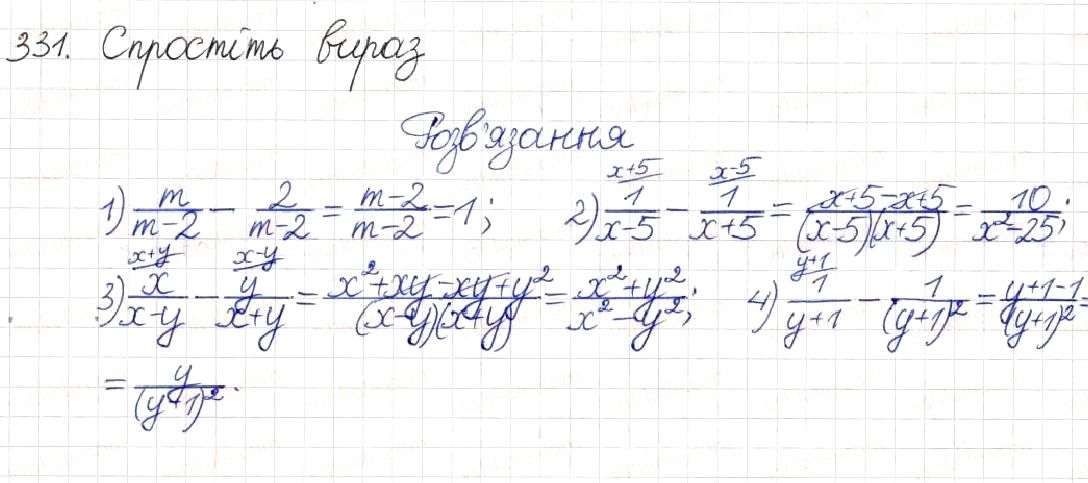 331. Спростіть вираз
Розв'язання
1) m/(m-2) - 2/(m-2) = (m-2)/(m-2) = 1; 2) (x+5/ 1)/(x-5) - (x-5/ 1)/(x+5) = (x+5-x+5)/((x-5)(x+5)) = 10/(x²-25);
3) (x+y/ x)/(x-y) - (x-y/ y)/(x+y) = (x²+xy-xy+y²)/((x-y)(x+y)) = (x²+y²)/(x²-y²); 4) (y+1/ 1)/(y+1) - 1/(y+1)² = (y+1-1)/(y+1)² =
= y/(y+1)².